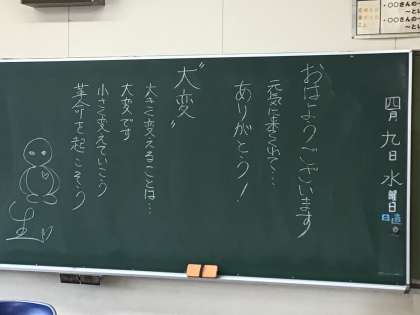 四月九日水曜日
日直
おはようございます
元気に来てくれて…
ありがとう！
“大変”
大きく変えることは…
大変です
小さく変えていこう
革命を起こそう